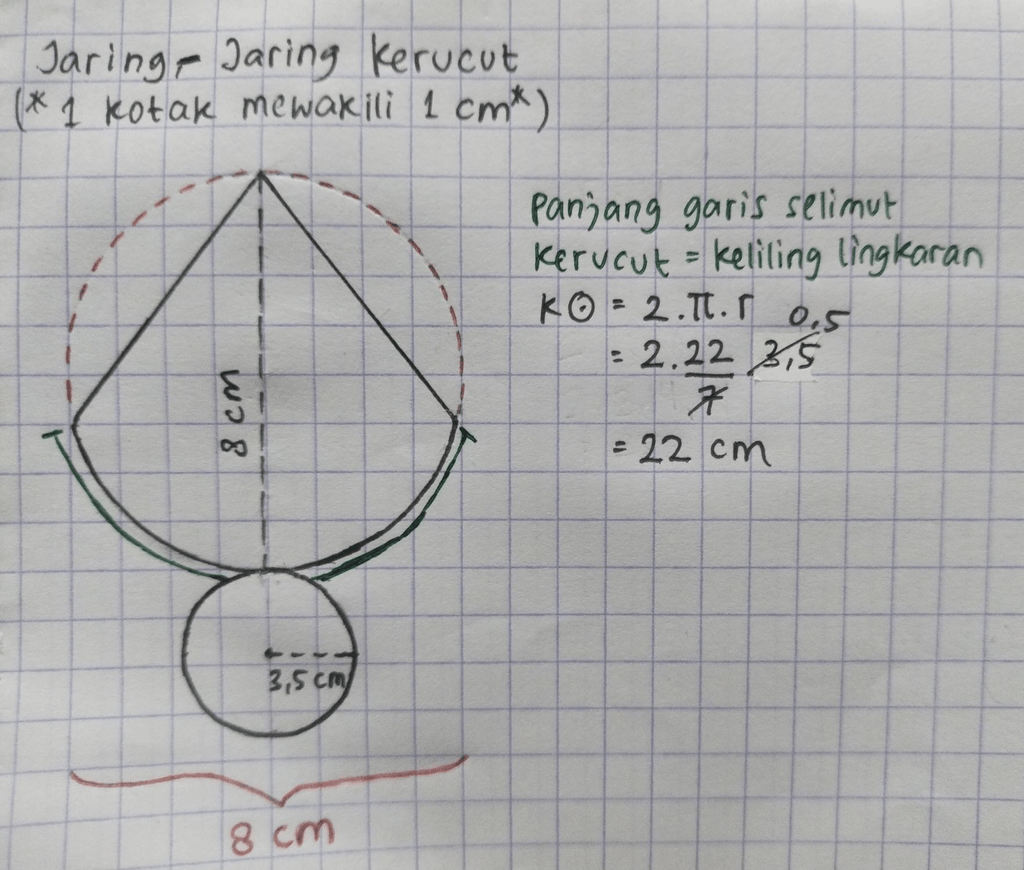 Jaring-Jaring kerucut
(* 1 kotak mewakili 1 cm*)
Panjang garis selimut
kerucut = keliling lingkaran
K⊙ = 2.π.r
0,5
= 2.22/7 3,5
= 22 cm
8 cm
3,5 cm
8 cm